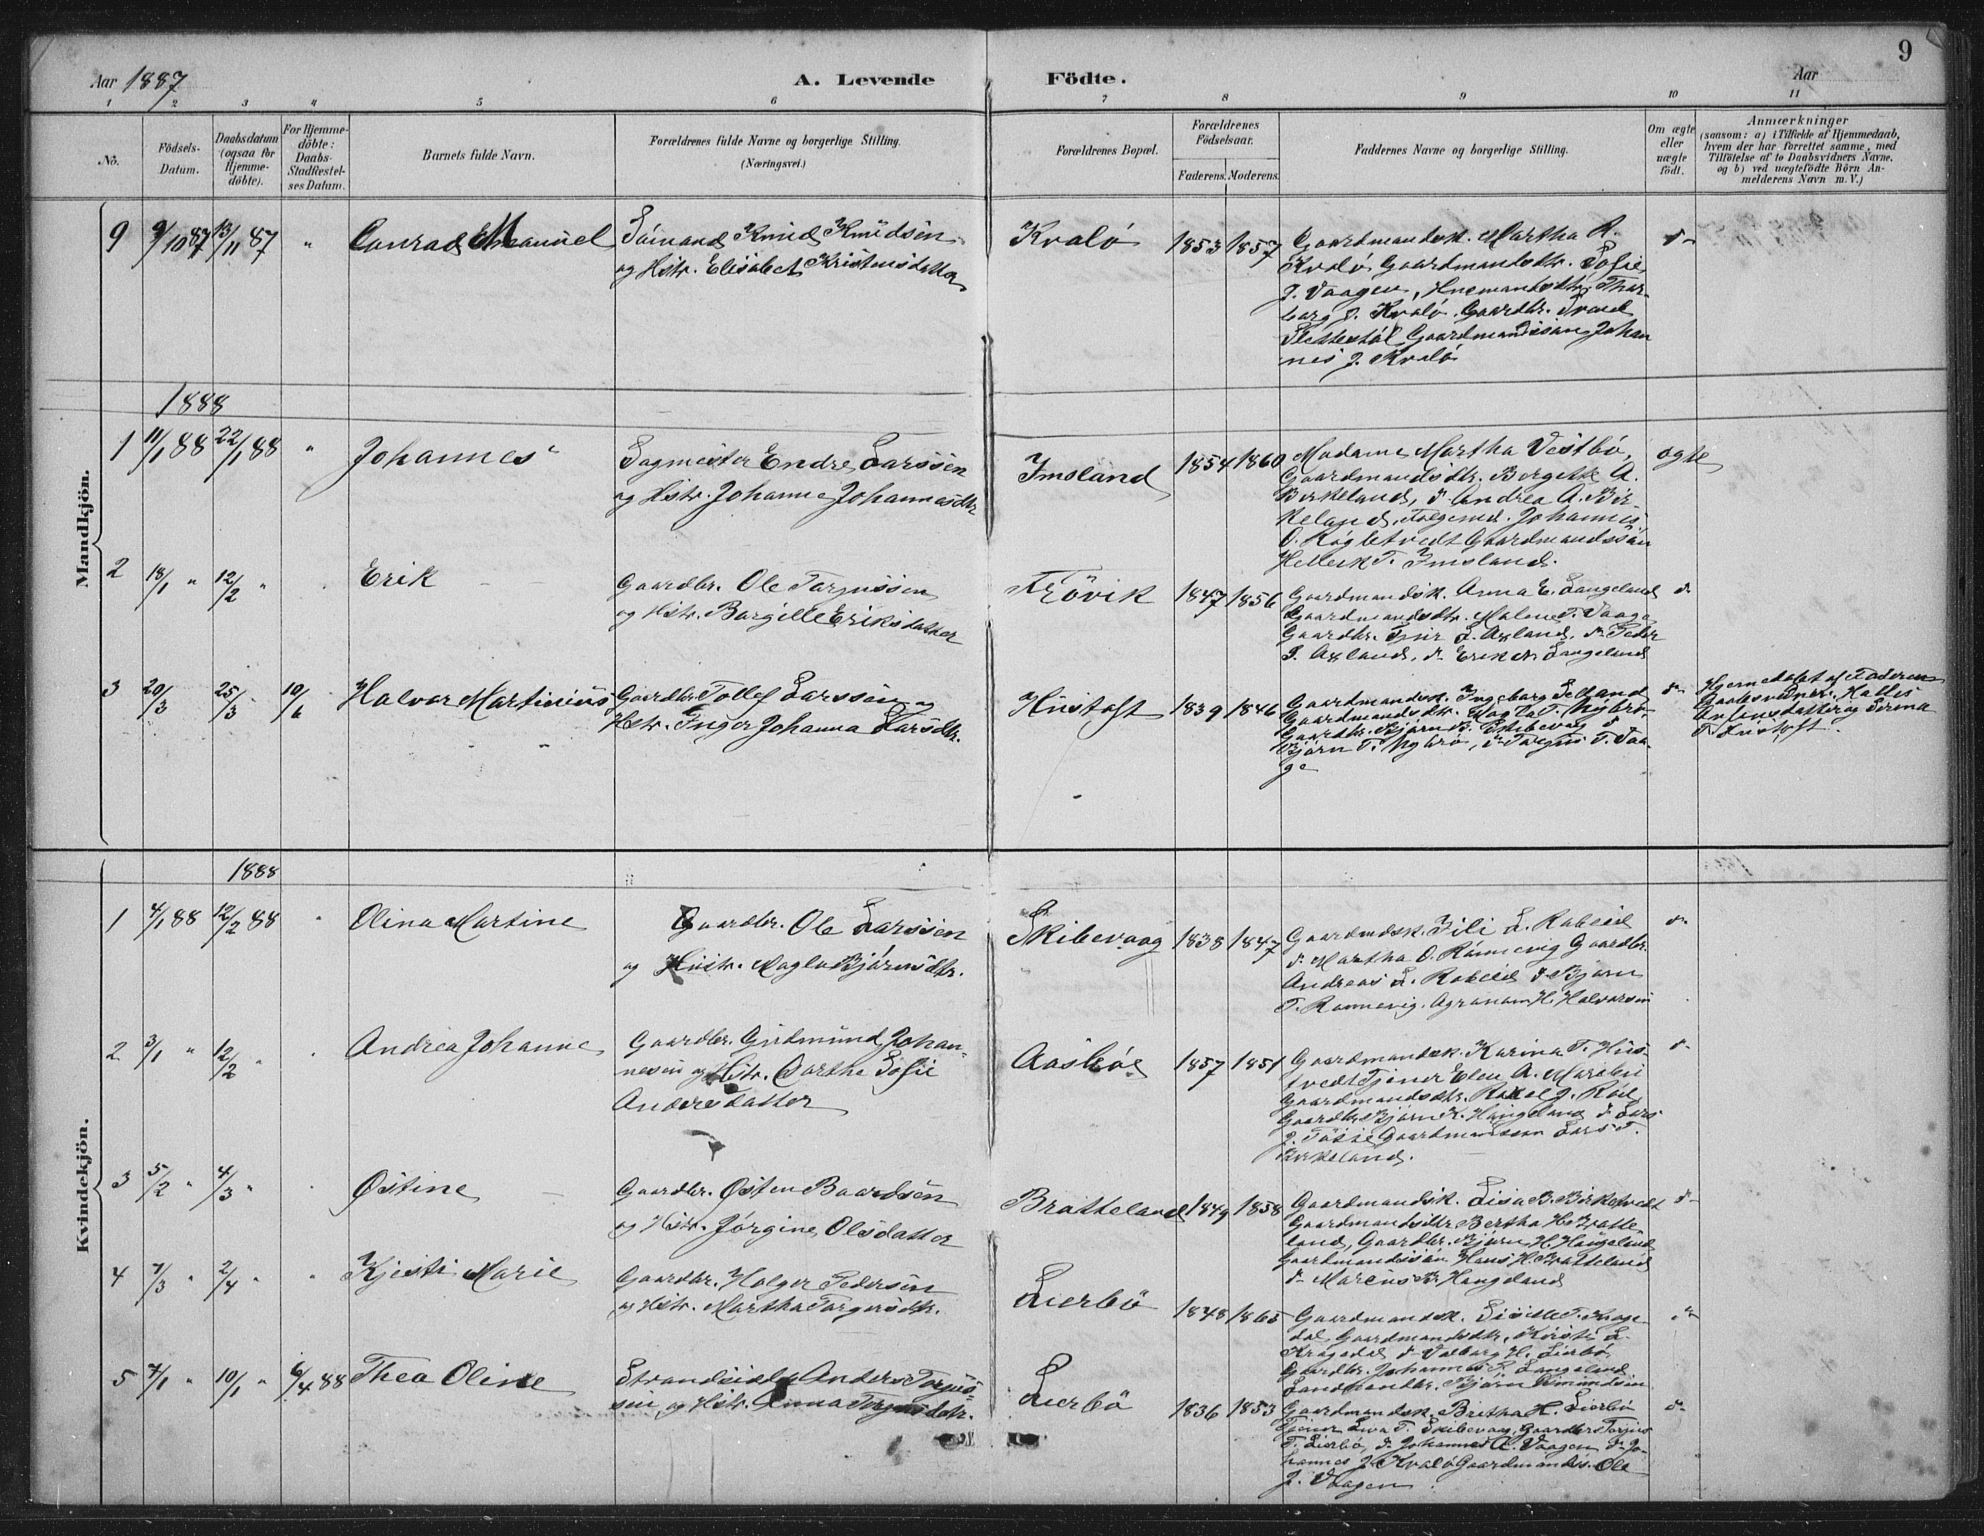 9
Aar 1887
A. Levende Födte.
Aar
1 2 3 4 5 6 7 8 9 10 11
No.
Födsels-Datum.
Daabsdatum (ogsaa for Hjemme-döbte).
For Hjemme-döbte: Daabs-Stadfestel-ses Datum.
Barnets fulde Navn.
Forældrenes fulde Navne og borgerlige Stilling.
(Næringsvei.)
Forældrenes Bopæl.
Forældrenes Födselsaar.
Faderens. Moderens.
Faddernes Navne og borgerlige Stilling.
Om ægte eller uægte født.
Anmærkninger
(saasom: a) i Tilfælde af Hjemmedaab,
hvem der har forrettet samme, med
Tilföielse af to Daabsvidners Navne,
og b) ved uægtefödte Börn An-
melderens Navn m. V.)
Mandkjön.
9 9/10 87 13/11 87 " Conrad Manuel
Sömand Knud Knudsen
og Hstr. Elisabet Kristensdatter
Kvalö 1853 1857
Gaardmandsk. Martha R.
Kvalö Gaardmandsdtr. Sofie
J. Vaagen, Husmandsdtr. Thor-
borg J. Kvalö, Gaardbr. Svend
Slettestöl Gaardmandssön Johan
nes J. Kvalö
d-
1888
1 11/1 88 22/1 88 " Johannes
Sagmester Endre Larssen
og Hstr. Johanne Johannesdtr
Imsland 1854 1860
Madame Martha Vestbö,
Gaardmandsdtr. Bergitte A.
Birkeland, d- Andrea A. Bir-
keland, Johannes
O. Gaardmandssön
T. Imsland.
ægte
2 18/1 " 12/2 " Erik
Gaardbr. Ole Torjussen
og Hstr. Eriksdatter
1847 1856
Gaardmandsk. Anna E. Langeland
Gaardmandsdtr. Malene T. Vaage
Gaardbr. L. Axland, d- Peder
Axland, d- Erik Langeland
d-
3 20/3 25/3 " 10/6 Halvor Martinius
Gaardbr. Tollef Larssen og
Hstr. Inger Johanna Larsdtr.
Hustoft 1839 1846
Gaardmandsk. Ingeborg
Gaardmandsdtr. T. Nybrö,
Gaardbr. Björn B. Skibevaag d-
Björn T. Nybrö, d- Torgius T. Vaa-
ge
d-
Hjemedöbt af Faderen
Daabsvidner
og Serina
T. Hustoft.
Kvindekjön.
1888
1 4/1 88 12/2 88 " Olina Martine
Gaardbr. Ole Larssen
og Hustr. Magla Björnsdtr.
Skibevaag 1838 1847
Gaardmdsk. L. Rabeid
d- Martha O. Rönnevig Gaardbr.
Andreas L. Rabeid d- Björn
T. Rønnevig, H. Halvorsen
d-
2 3/1 " 12/2 " Andrea Johanne
Gaardbr. Gudmund Johan-
nesen og Hstr. Marthe Sofie
Andersdatter
Aasböe 1857 1851
Gaardmandsk. Karina T. Hus-
tvedt Tjener Elen A.
Gaardmandsdtr. Rakel J. Röd,
Gaardbr. Björn K. Haugeland d- Lars
J. Gaardmandssøn Lars T.
Birkeland.
d-
3 5/2 " 4/3 " Østine
Gaardbr. Østen Baardsen
og Hstr. Jörgine Olsdatter
Bratteland 1849 1858
Gaardmandsk. Lisa B.
Gaardmandsdtr. Bertha H. Bratte
land, Gaardbr. Björn H. Haugeland
Gaardmandssön Hans H. Bratteland
d- Marcus K. Haugeland
d-
4 7/3 " 2/4 " " Kjesti Marie
Gaardbr. Holger Pedersen
og Hstr. Martha Torgersdtr.
Lierbö 1848 1865
Gaardmandsk. T. Krage-
dal, Gaardmandsdtr. Kirsti L.
Kragedal d- Valborg H. Lierbö,
Gaardbr. Johannes P. Langeland
Björn
d-
5 7/1 " 10/1 " 6/4 88 Thea Oline
Strandsidder Anders Torjus-
sen og Hstr. Anna Torjusdatr.
Lierbö 1836 1853
Gaardmandsk. Britha H. Lierbö
Tjener T. Skibevaag, Gaardbr. Torjus
T. Lierbö, d- Johannes A. Vaagen d- Jo-
hannes J. Kvalö Gaardmands. Ole
J. Vaagen
d-